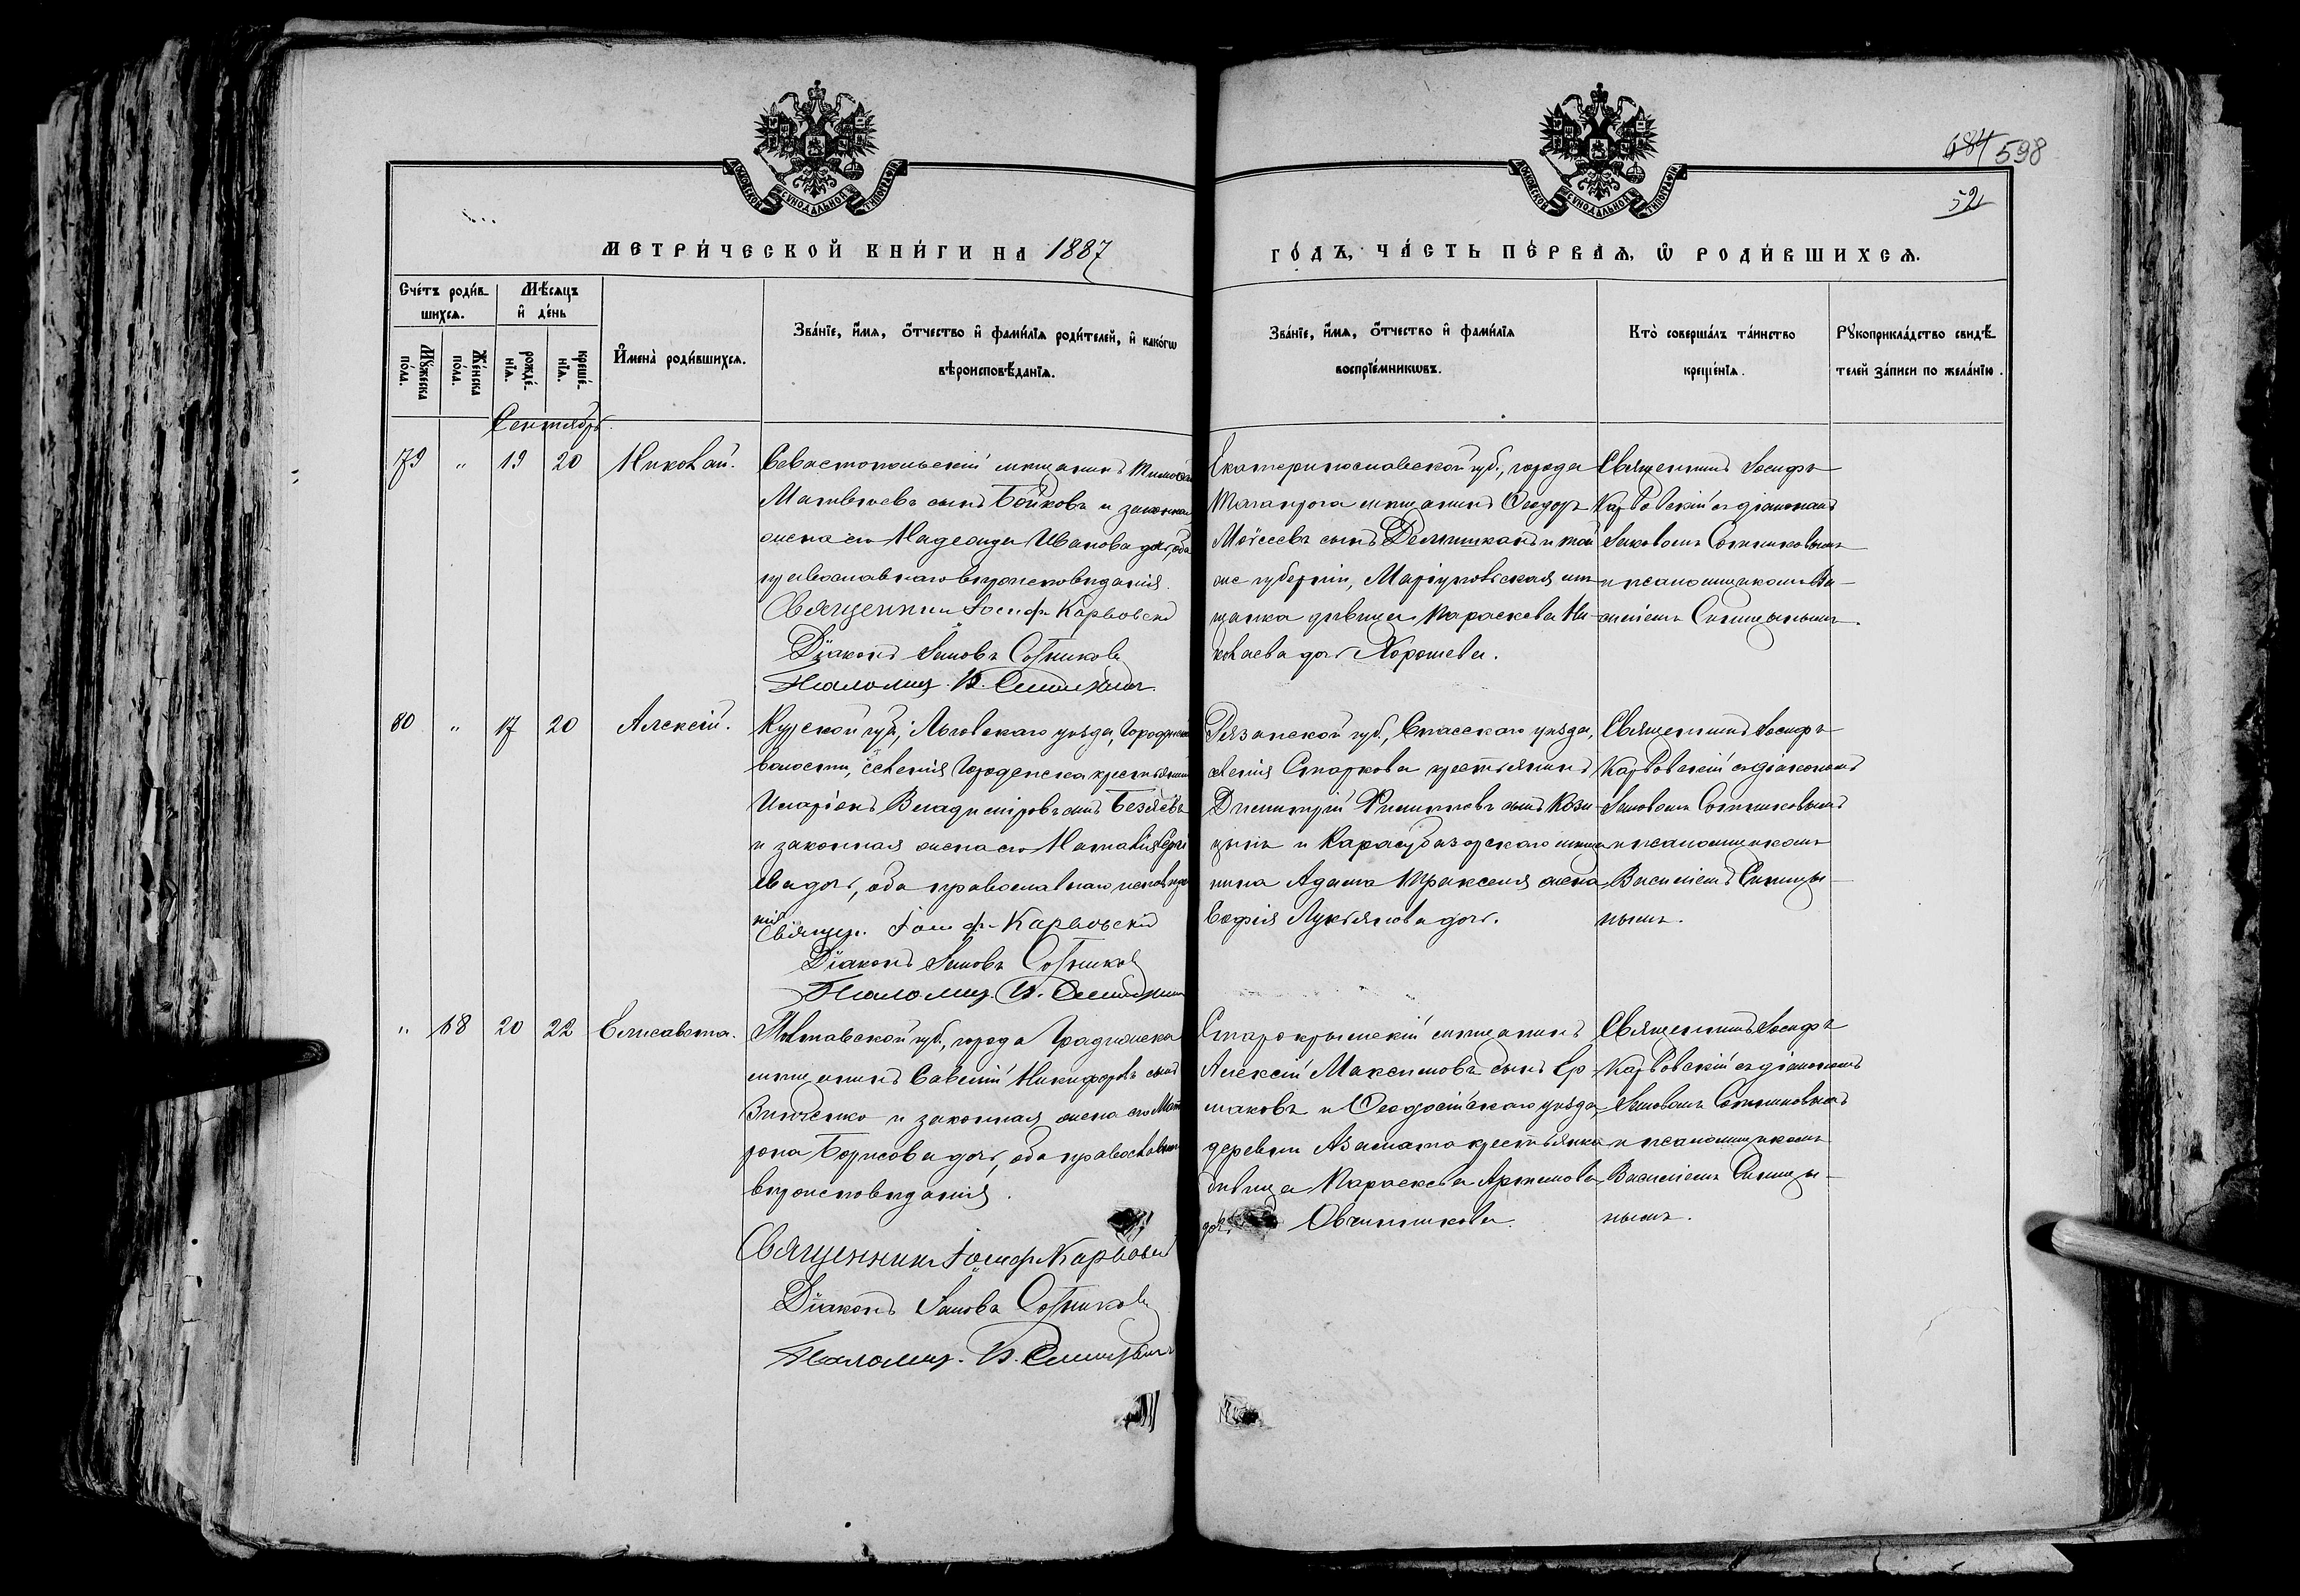 484 598
52
МЕТРИ́ЧЕСКОЙ КНИ́ГИ НА 1887
ГО́ДЪ, ЧА́СТЬ ПЕ́РВАѦ, Ѡ РОДИ́ВШИХСѦ.
Сче́тъ роди́в-
шихсѧ.
Мꙋ́жеска по́ла.
Же́нска по́ла.
Мѣ́сѧцъ
и҆ де́нь
рожде́-
нїѧ.
креще́-
нїѧ.
И҆мена̀ роди́вшихсѧ.
Зва́нїе, и҆́мѧ, о҆́тчество и҆ фами́лїѧ роди́телей, и҆ како́гѡ
вѣроисповѣ́данїѧ.
Зва́нїе, и҆́мѧ, о҆́тчество и҆ фами́лїѧ
воспрїе́мникѡвъ.
Кто̀ соверша́лъ та́инство
креще́нїѧ.
Рꙋкоприкла́дство свидѣ́-
телей за́писи по жела́нїю.
Сентябрь.
79 " 19 20 Николай.
Севастопольскій мѣщанинъ
Матвѣевъ сынъ Бойковъ и законная
жена его Надежда Иванова доч., оба
православнаго вѣроисповѣданія.
Священникъ Іосифъ Карвовскій
Діаконъ Іаковъ Сотниковъ
Псаломщ. В. Синицынъ
Екатеринославской губ., города
Таганрога мѣщанинъ Ѳеодоръ
Моѵсеевъ сынъ и той
же губерніи, Маріупольская мѣ-
щанка дѣвица Параскева Ни-
колаева доч. Хорошева.
Священникъ Іосифъ
Карвовскій съ діакономъ
Іаковомъ Сотниковымъ
и псаломщикомъ Ва-
силіемъ Синицынымъ.
80 " 17 20 Алексій.
Курской губ., Льговскаго уѣзда,
волости, селенія Городенска крестьянинъ
Иларіонъ Владиміровъ сынъ
и законная жена его Наталія Сергі-
ева доч., оба православнаго исповѣда-
нія.
Священ. Іосифъ Карвовскій
Діаконъ Іаковъ Сотниковъ
Псаломщ. В. Синицынъ
Рязанской губ., Спасскаго уѣзда,
селенія Старкова крестьянинъ
Димитрій Филипповъ сынъ Кози-
цынъ и Карасубазарскаго мѣща-
нина Адама жена
Софія Лукьянова доч.
Священникъ Іосифъ
Карвовскій съ діакономъ
Іаковомъ Сотниковымъ
и псаломщикомъ
Василіемъ Синицы-
нымъ.
" 68 20 22 Елисавета.
Полтавской губ., города Градижска
мѣщанинъ Савелій Никифоровъ сынъ
Зинченко и законная жена его Мат-
рона Борисова доч., оба православнаго
вѣроисповѣданія.
Священникъ Іосифъ Карвовскій
Діаконъ Іаковъ Сотниковъ
Псаломщ. В. Синицынъ
Старокрымскій мѣщанинъ
Алексій Максимовъ сынъ Ер-
маковъ и Ѳеодосійскаго уѣзда,
деревни крестьянка
дѣвица Параскева Артемова
доч. Овчинникова.
Священникъ Іосифъ
Карвовскій съ діакономъ
Іаковомъ Сотниковымъ
и псаломщикомъ
Василіемъ Синицы-
нымъ.